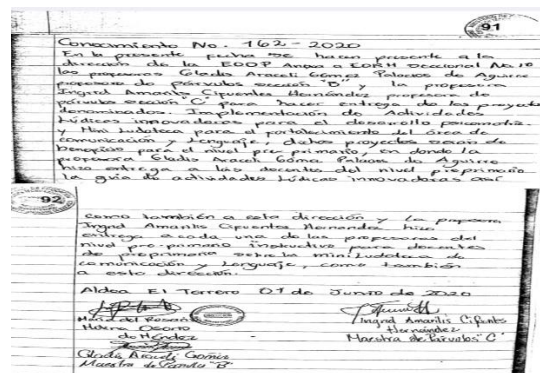 91
Conocimiento No. 162-2020
En la presente fecha se hacen presente a la
dirección de la EODP Anexa a EORM Seccional No. 10
las profesoras Gladis Araceli Gómez Palacios de Aguirre
profesora de párvulos sección "B" y la profesora
Ingrid Amarilis Cifuentes Hernández profesora de
párvulos sección "C" para hacer entrega de los proyectos
denominados. Implementación de Actividades
Lúdicas innovadoras para el desarrollo psicomotriz.
y Mini Ludoteca para el fortalecimiento del área de
comunicación y Lenguaje, dichos proyectos serán de
beneficio para el nivel pre primario, en donde la
profesora Gladis Araceli Gómez Palacios de Aguirre
hizo entrega a las docentes del nivel preprimario
la guía de actividades Lúdicas innovadoras así
92
como también a esta dirección y la profesora
Ingrid Amarilis Cifuentes Hernandez hizo
entrega a cada una de las profesoras del
nivel pre-primario instructivo para docentes
de preprimaria sobre la mini Ludoteca de
comunicación y Lenguaje, como también
a esta dirección.
Aldea El Terrero 01 de Junio de 2020
María del Rosario
Osorio
de Méndez
Ingrid Amarilis Cifuentes
Hernández
Maestra de Párvulos "C"
Gladis Araceli Gómez
Maestra de Párvulos "B"